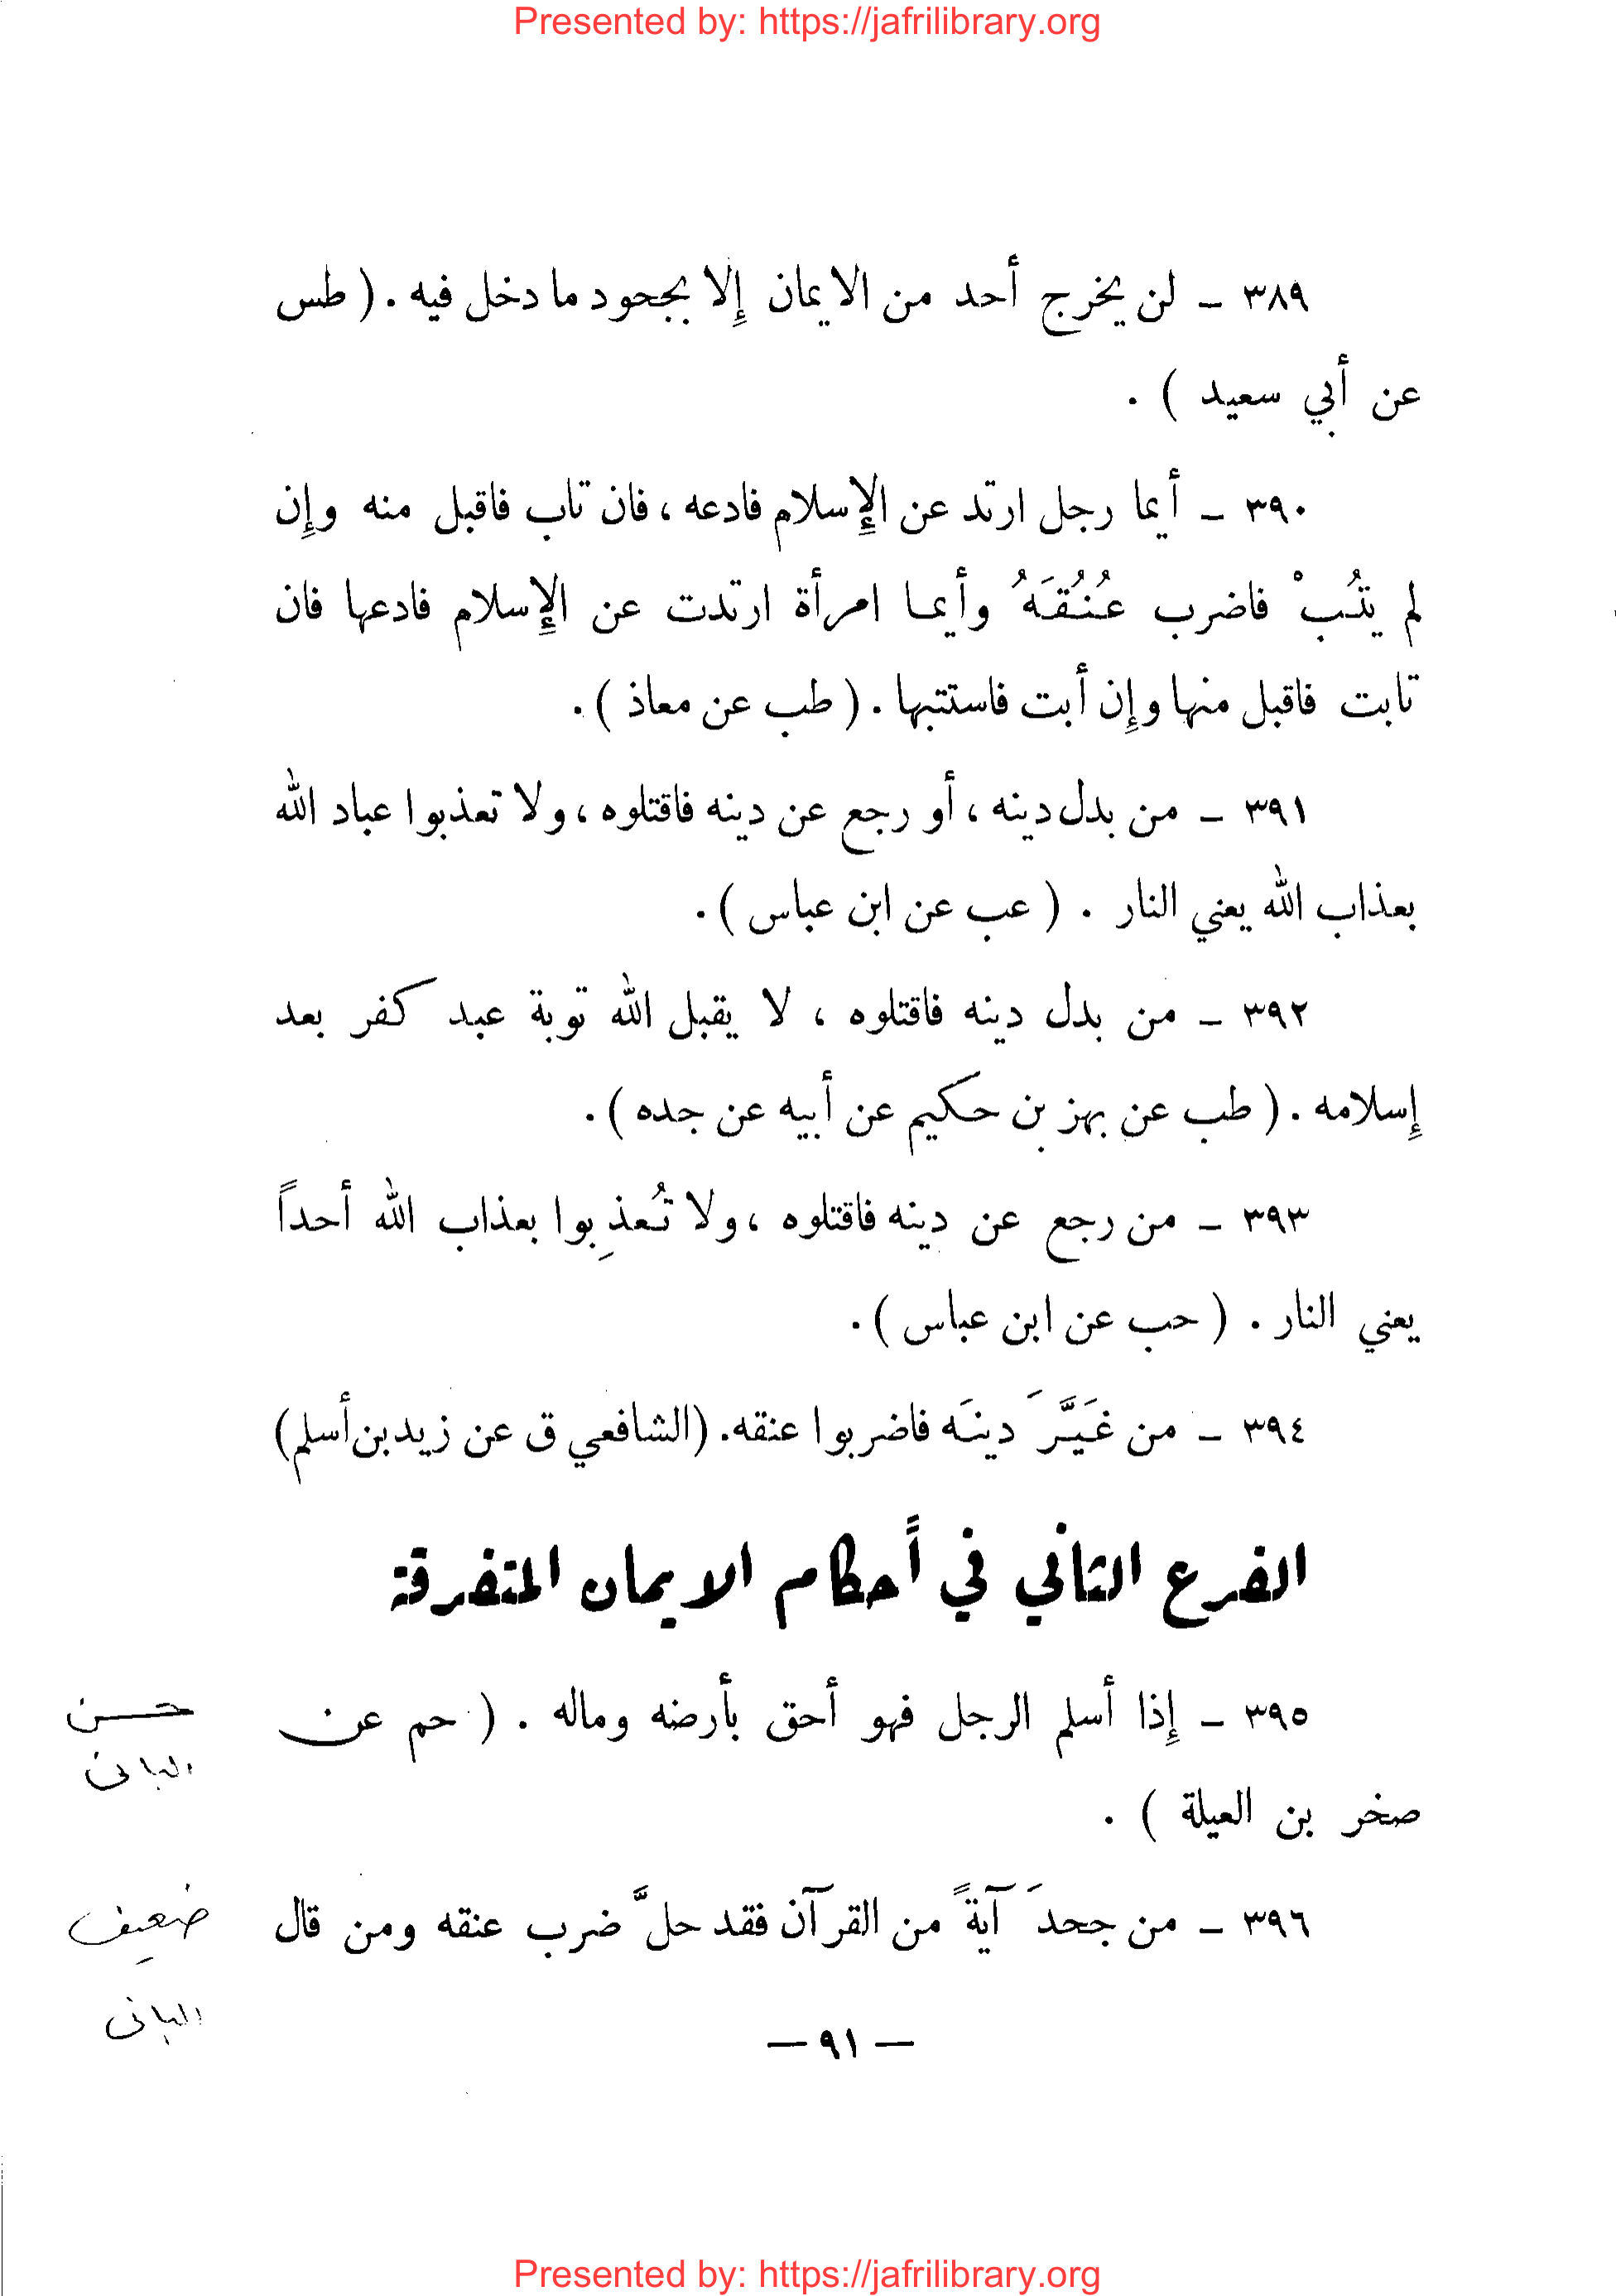 Presented by: https://jafrilibrary.org
٣٨٩ ـ لن يخرج أحد من الايمان إِلا بجحود ما دخل فيه . ( طس
عن أبي سعيد ) .
٣٩٠ ـ أيما رجل ارتد عن الإِسلام فادعه ، فان تاب فاقبل منه وإِن
لم يتُبْ فاضرب عُنُقَهُ وأيما امرأة ارتدت عن الإِسلام فادعها فان
تابت فاقبل منها وإِن أبت فاستتبها . ( طب عن معاذ ) .
٣٩١ ـ من بدل دينه ، أو رجع عن دينه فاقتلوه ، ولا تعذبوا عباد الله
بعذاب الله يعني النار . ( عب عن ابن عباس ) .
٣٩٢ ـ من بدل دينه فاقتلوه ، لا يقبل الله توبة عبد كفر بعد
إِسلامه . ( طب عن بهز بن حكيم عن أبيه عن جده ) .
٣٩٣ ـ من رجع عن دينه فاقتلوه ، ولا تُعذِبوا بعذاب الله أحداً
يعني النار . ( حب عن ابن عباس ) .
٣٩٤ ـ من غَيَّرَ دينَه فاضربوا عنقه. (الشافعي ق عن زيد بن أسلم)
الفرع الثاني في أحكام الايمان المتفرقة
٣٩٥ ـ إِذا أسلم الرجل فهو أحق بأرضه وماله . ( حم عن
حسن
البانی
صخر بن العيلة ) .
٣٩٦ ـ من جحدَ آيةً من القرآن فقد حلَّ ضرب عنقه ومن قال
ضعيف
البانی
— ٩١ —
Presented by: https://jafrilibrary.org